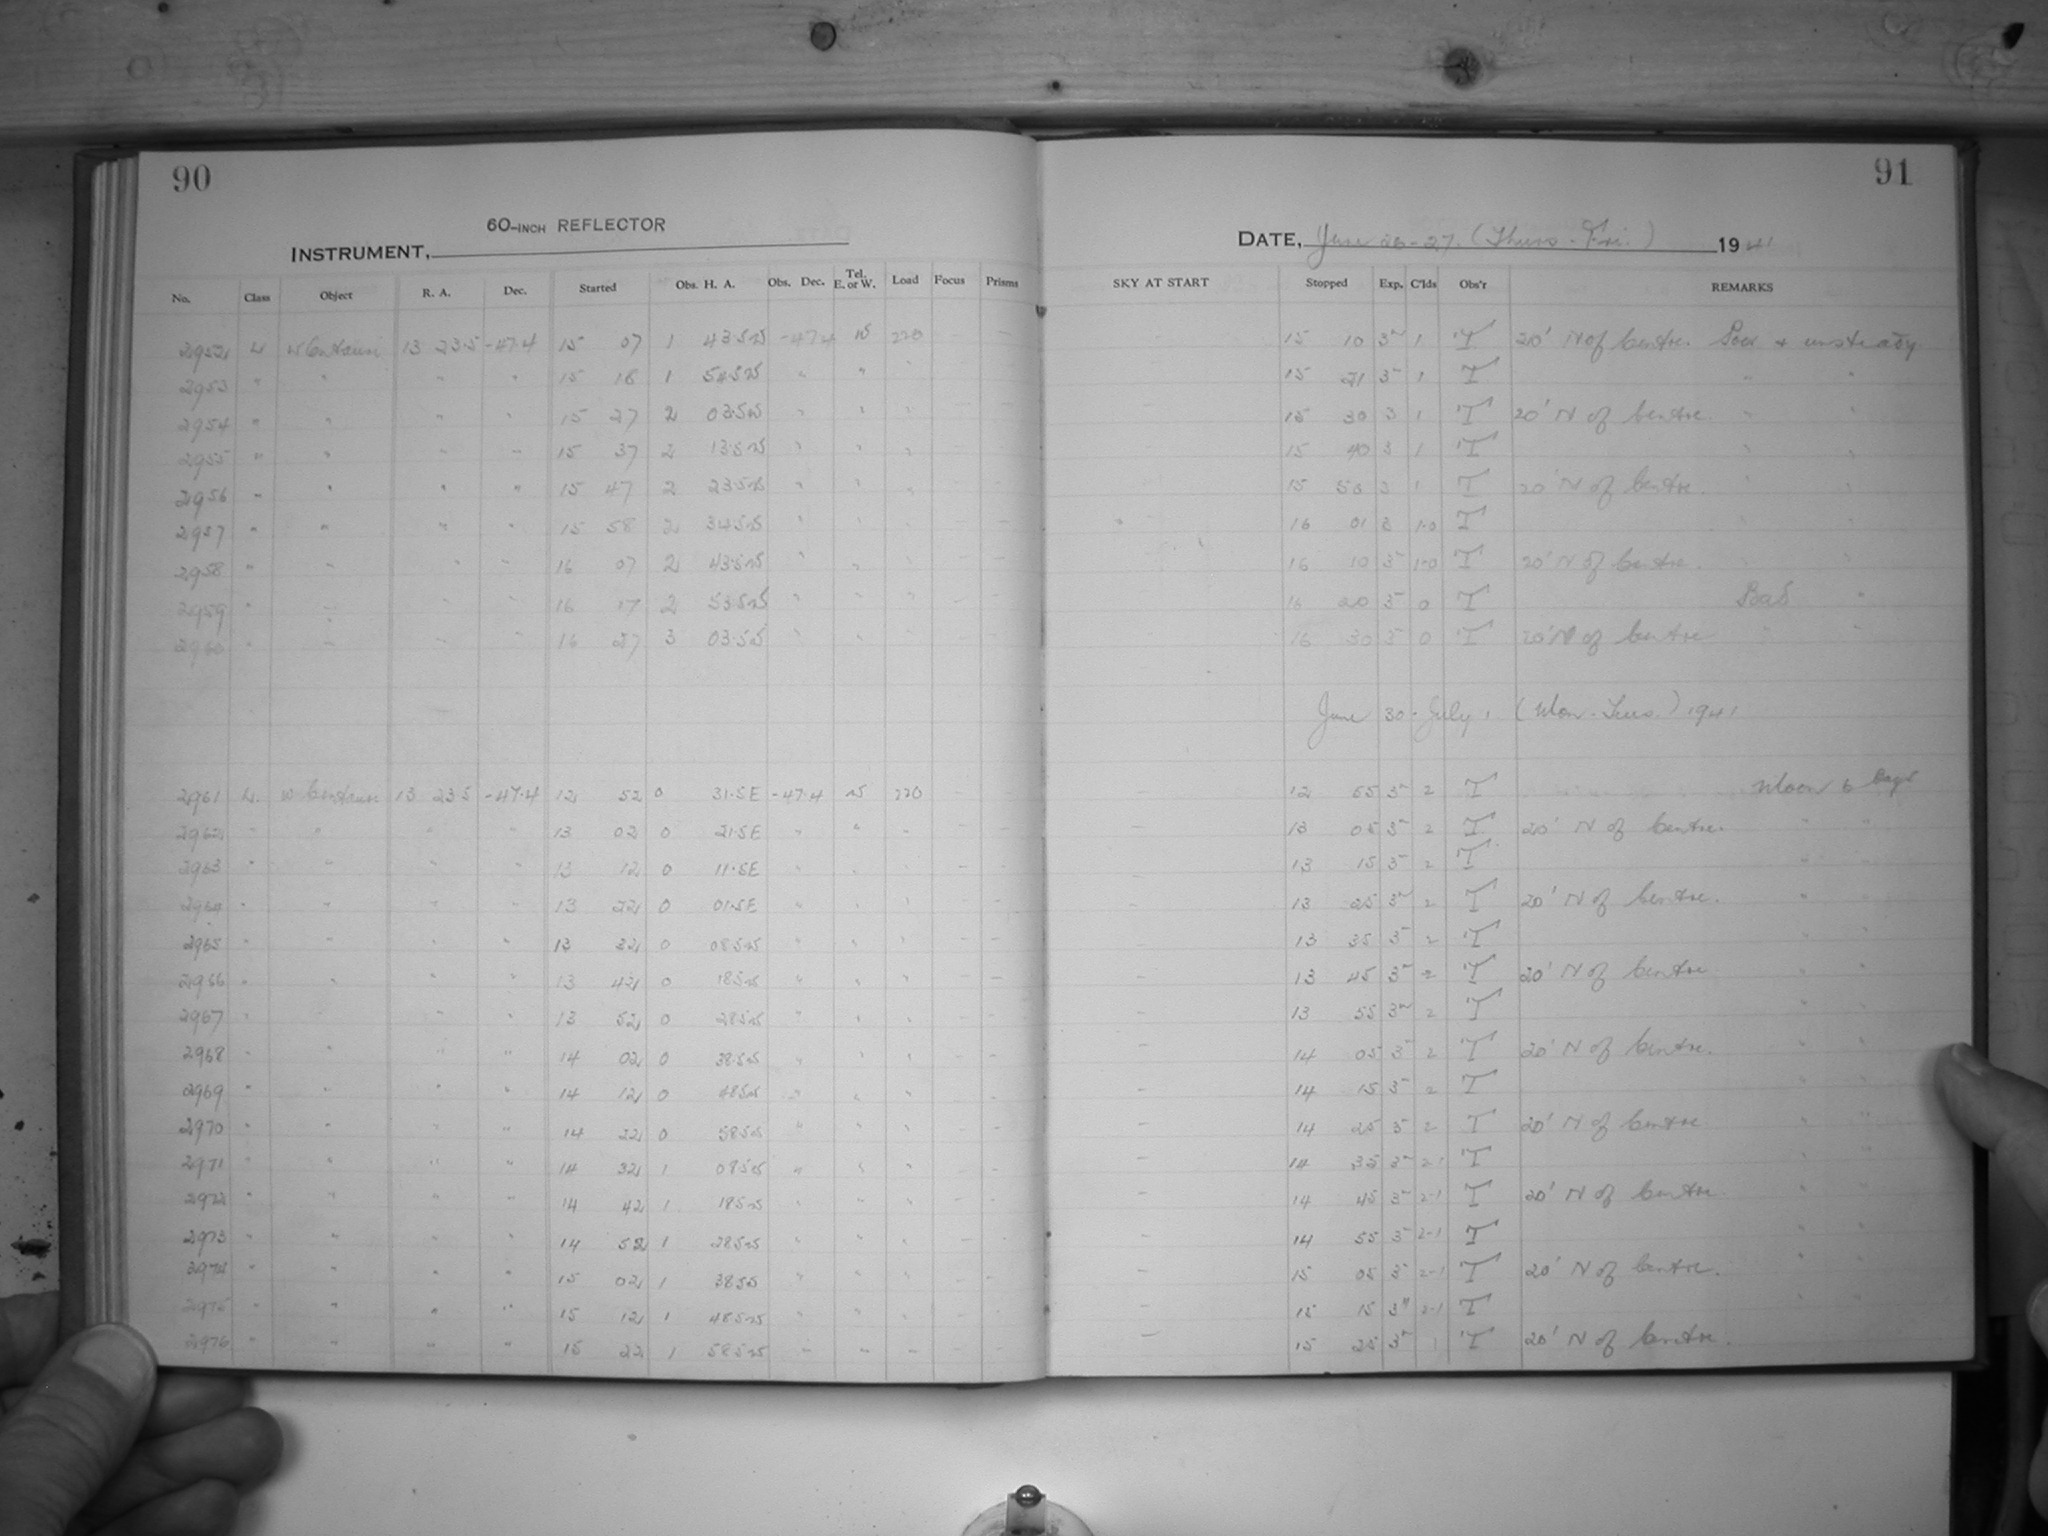 90
60-INCH REFLECTOR
INSTRUMENT,
No. Class Object R. A. Dec. Started Obs. H. A. Obs. Dec. Tel. E. or W. Load Focus Prisms
2952 ω Centauri 13 23.5 -47.4 15 07 1 43.5 W -47.4 W 220 — —
2953 " " " " 15 18 1 54.5 W " "
2954 " " " " 15 27 2 03.5 W " "
2955 " " " " 15 37 2 13.5 W " "
2956 " " " " 15 47 2 23.5 W " "
2957 " " " " 15 58 2 34.5 W " "
2958 " " " " 16 07 2 43.5 W " "
2959 " " " " 16 17 2 53.5 W " "
2960 " " " " 16 27 3 03.5 W " "
2961 L. ω Centauri 13 23.5 -47.4 12 52 0 31.5 E -47.4 W 220 — —
2962 " " " " 13 02 0 21.5 E " " "
2963 " " " " 13 12 0 11.5 E " "
2964 " " " " 13 22 0 01.5 E " " "
2965 " " " " 13 32 0 08.5 W " " "
2966 " " " " 13 42 0 18.5 W " " "
2967 " " " " 13 52 0 28.5 W " " "
2968 " " " " 14 02 0 38.5 W " " "
2969 " " " " 14 12 0 48.5 W " " "
2970 " " " " 14 22 0 58.5 W " " "
2971 " " " " 14 32 1 08.5 W " " "
2972 " " " " 14 42 1 18.5 W " " "
2973 " " " " 14 52 1 28.5 W " " "
2974 " " " " 15 02 1 38.5 W " " "
2975 " " " " 15 12 1 48.5 W " " "
2976 " " " " 15 22 1 58.5 W " " "
91
DATE, June 26-27. (Thurs - Fri.) 1941
SKY AT START Stopped Exp. C'lds Obs'r REMARKS
15 10 3m 1 T 20' N of Centre. Poor & unsteady
15 21 3 1 T " "
15 30 3 1 T 20' N of Centre. " "
15 40 3 1 T " "
15 50 3 1 T 20' N of Centre. " "
16 01 3 1-0 T " "
16 10 3 1-0 T 20' N of Centre. " "
16 20 3 0 T Bad "
16 30 3 0 T 20' N of Centre " "
June 30 - July 1 (Mon - Tues.) 1941
12 55 3 2 T Moon 6 Days
13 05 3 2 T 20' N of Centre. " "
13 15 3 2 T " "
13 25 3m 2 T 20' N of Centre. " "
13 35 3 2 T " "
13 45 3m 2 T 20' N of Centre " "
13 55 3m 2 T " "
14 05 3 2 T 20' N of Centre. " "
14 15 3 2 T " "
14 25 3 2 T 20' N of Centre " "
14 35 3m 2-1 T " "
14 45 3m 2-1 T 20' N of Centre " "
14 55 3 2-1 T " "
15 05 3 2-1 T 20' N of Centre. " "
15 15 3m 2-1 T " "
15 25 3m 1 T 20' N of Centre.